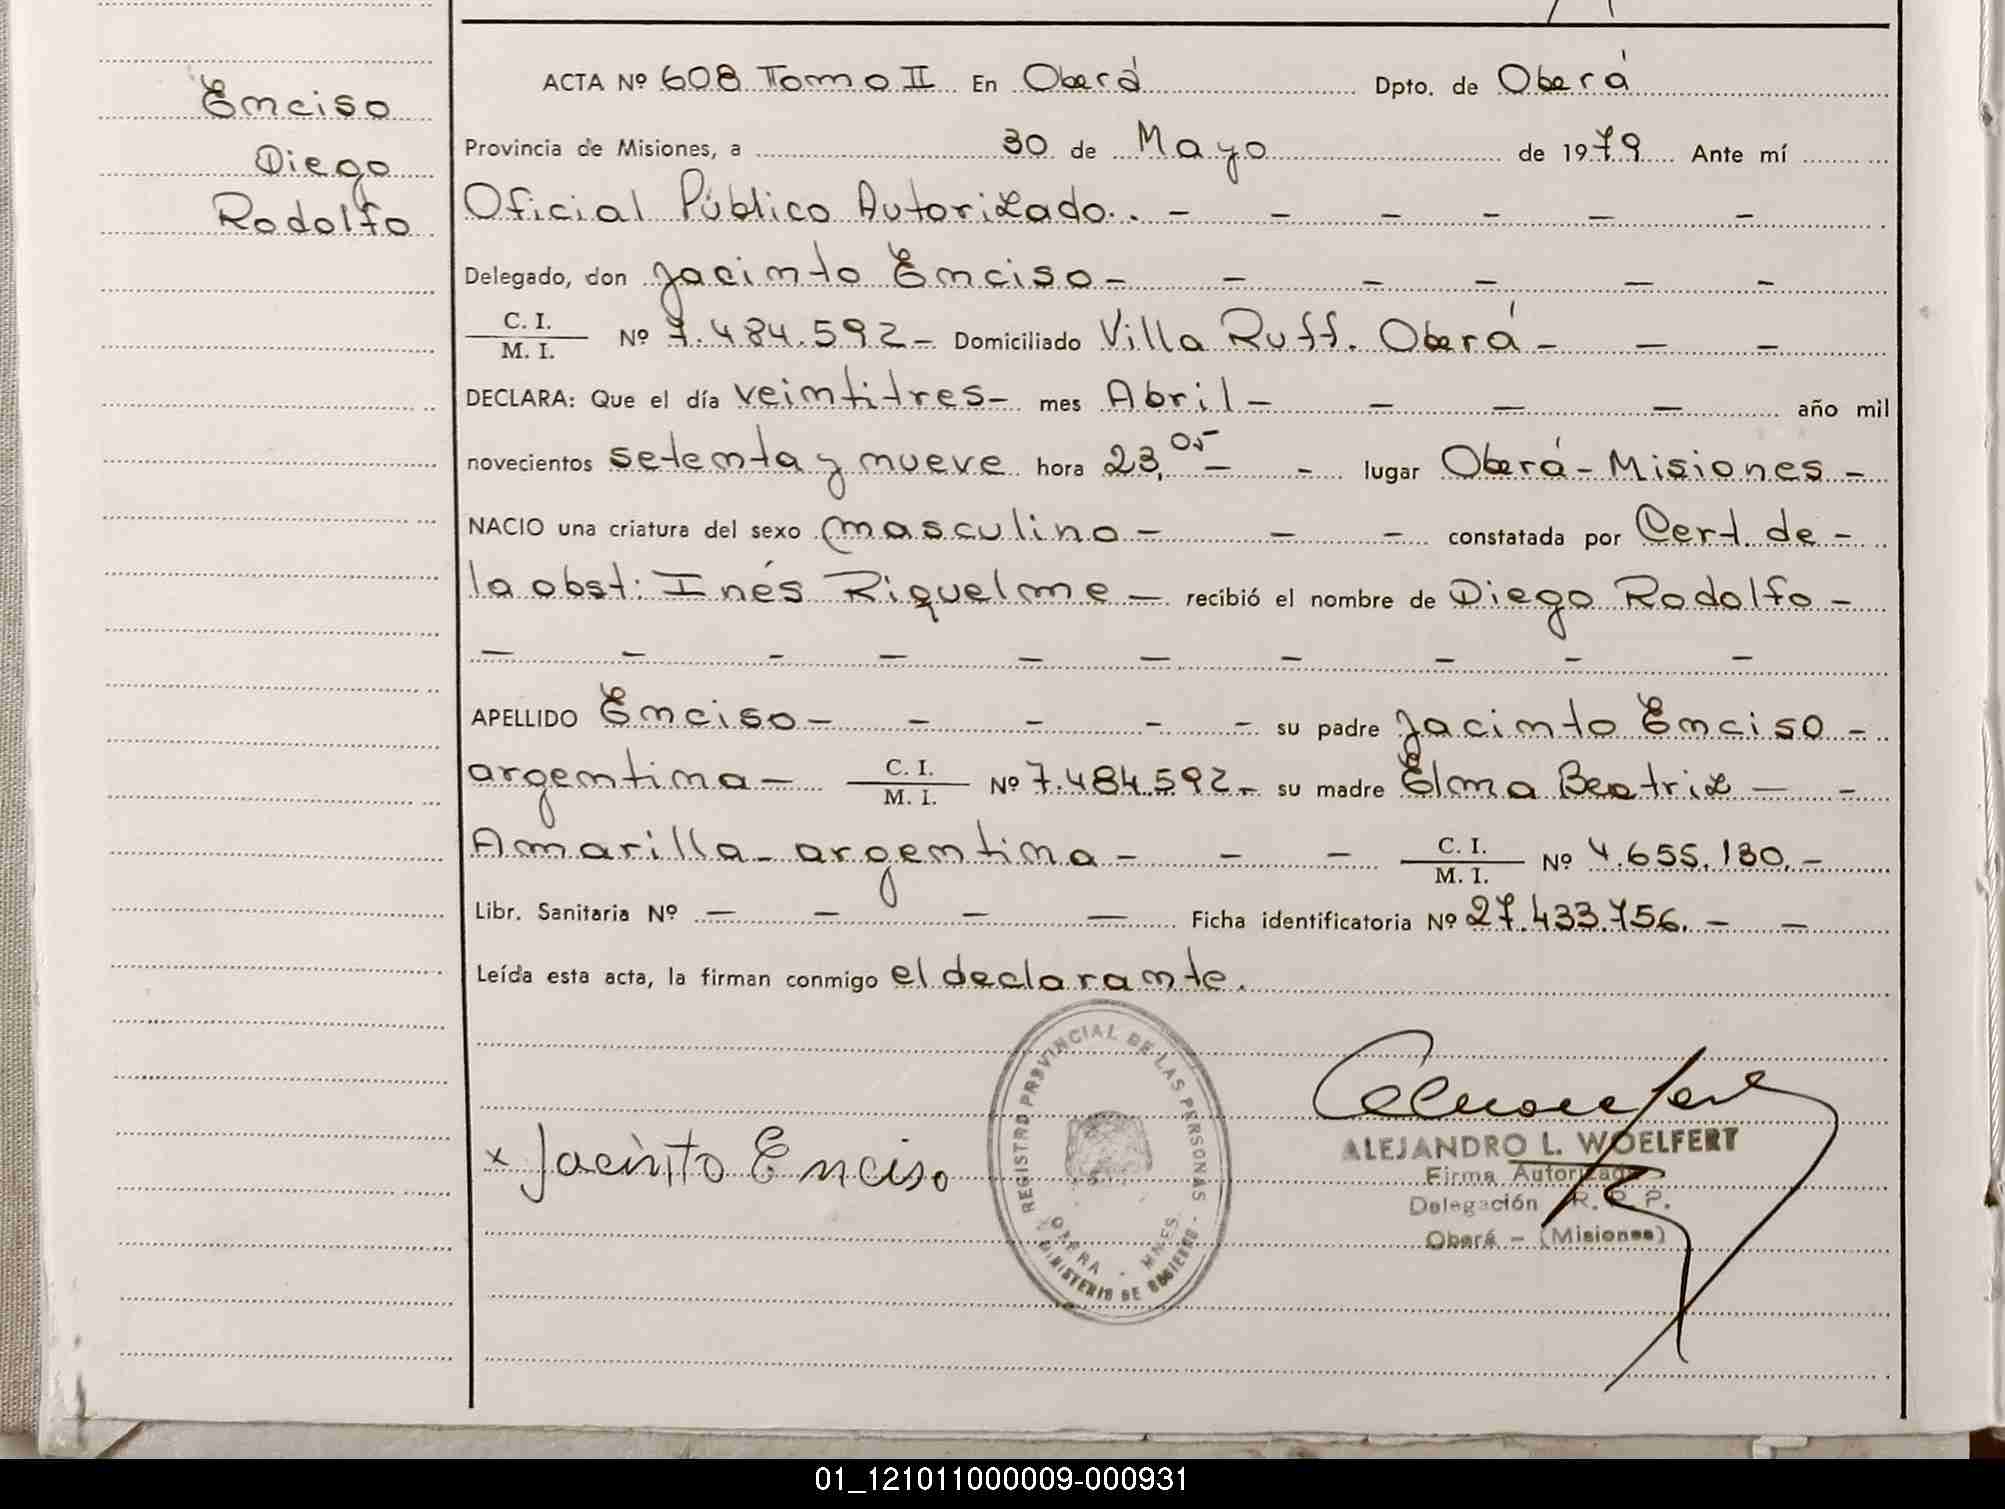 Enciso
Diego
Rodolfo
ACTA Nº 608 Tomo II En Oberá Dpto. de Oberá
Provincia de Misiones, a 30 de Mayo de 1979 Ante mí
Oficial Público Autorizado. . - - - - - -
Delegado, don Jacinto Enciso - - - - - -
C. I.
M. I. Nº 7.484.592 - Domiciliado Villa Ruff. Oberá - - -
DECLARA: Que el día veintitres - mes Abril - - - - año mil
novecientos setenta y nueve hora 23,05 - - lugar Oberá - Misiones -
NACIO una criatura del sexo masculino - - - constatada por Cert. de -
la obst: Inés Riquelme - recibió el nombre de Diego Rodolfo -
- - - - - - - - - -
APELLIDO Enciso - - - - - su padre Jacinto Enciso -
argentina - C. I. / M. I. Nº 7.484.592 - su madre Elma Beatriz - -
Amarilla - argentina - - - C. I. / M. I. Nº 4.655.130. -
Libr. Sanitaria Nº - - - - Ficha identificatoria Nº 27.433.756. - -
Leída esta acta, la firman conmigo el declarante.
x Jacinto Enciso
REGISTRO PROVINCIAL DE LAS PERSONAS
OBERA - MNES.
MINISTERIO DE GOBIERNO
ALEJANDRO L. WOELFERT
Firma Autorizada
Delegación R. P. P.
Oberá - (Misiones)
01_121011000009-000931